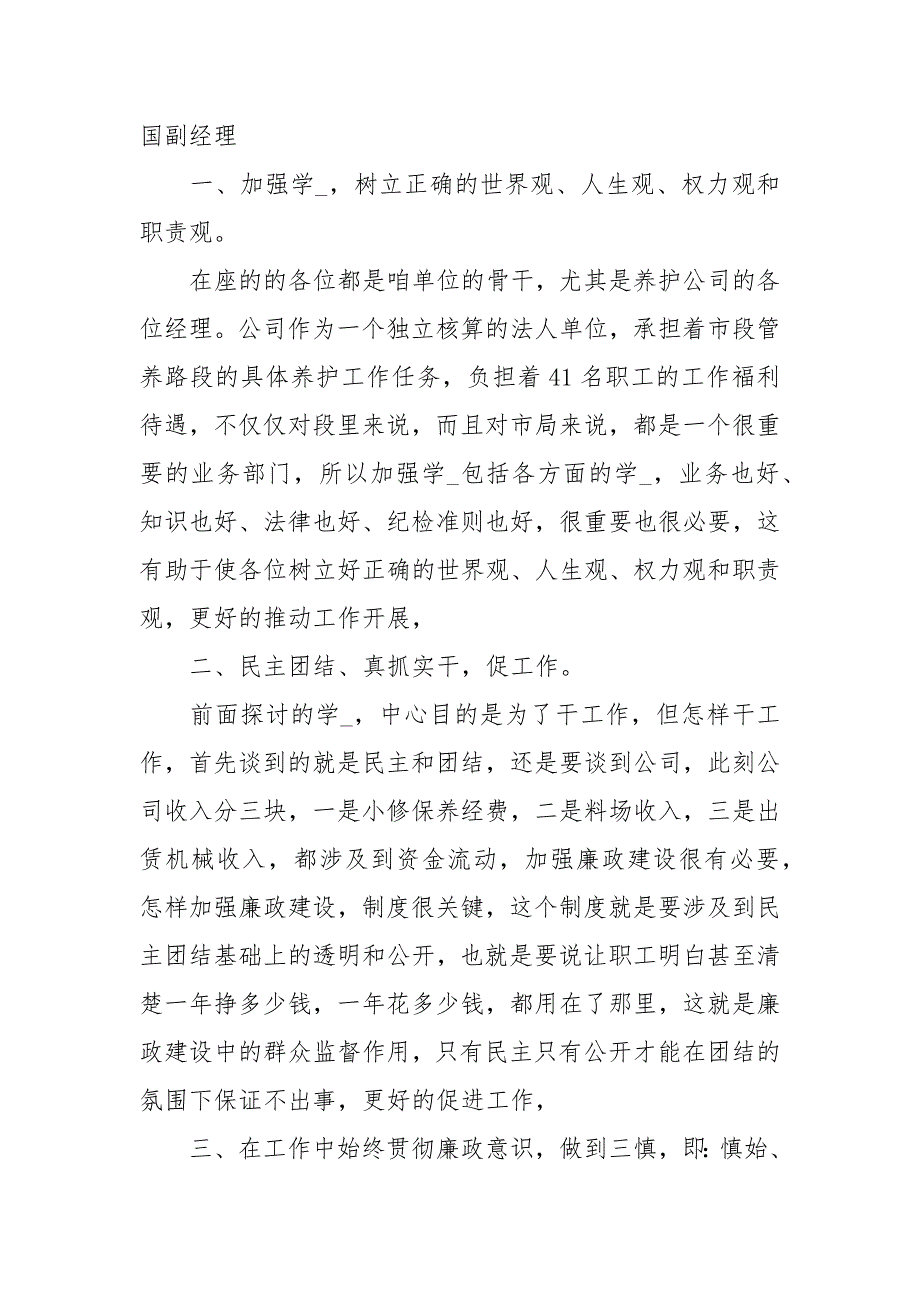 国副经理
一、加强学_，树立正确的世界观、人生观、权力观和
职责观。
在座的的各位都是咱单位的骨干，尤其是养护公司的各
位经理。公司作为一个独立核算的法人单位，承担着市段管
养路段的具体养护工作任务，负担着 41 名职工的工作福利
待遇，不仅仅对段里来说，而且对市局来说，都是一个很重
要的业务部门，所以加强学_包括各方面的学_，业务也好、
知识也好、法律也好、纪检准则也好，很重要也很必要，这
有助于使各位树立好正确的世界观、人生观、权力观和职责
观，更好的推动工作开展，
二、民主团结、真抓实干，促工作。
前面探讨的学_，中心目的是为了干工作，但怎样干工
作，首先谈到的就是民主和团结，还是要谈到公司，此刻公
司收入分三块，一是小修保养经费，二是料场收入，三是出
赁机械收入，都涉及到资金流动，加强廉政建设很有必要，
怎样加强廉政建设，制度很关键，这个制度就是要涉及到民
主团结基础上的透明和公开，也就是要说让职工明白甚至清
楚一年挣多少钱，一年花多少钱，都用在了那里，这就是廉
政建设中的群众监督作用，只有民主只有公开才能在团结的
氛围下保证不出事，更好的促进工作，
三、在工作中始终贯彻廉政意识，做到三慎，即：慎始、